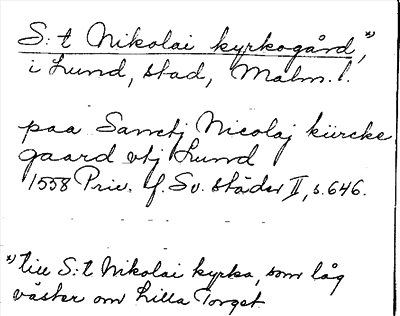 S:t Nikolai kyrkogård,*)
i Lund, stad, Malm. l.
paa Sanctj Nicolaj kiircke
gaard vtj Lund
1558 Priv. f. Sv. städer II, s. 646.
*) till S:t Nikolai kyrka, som låg
väster om Lilla Torget